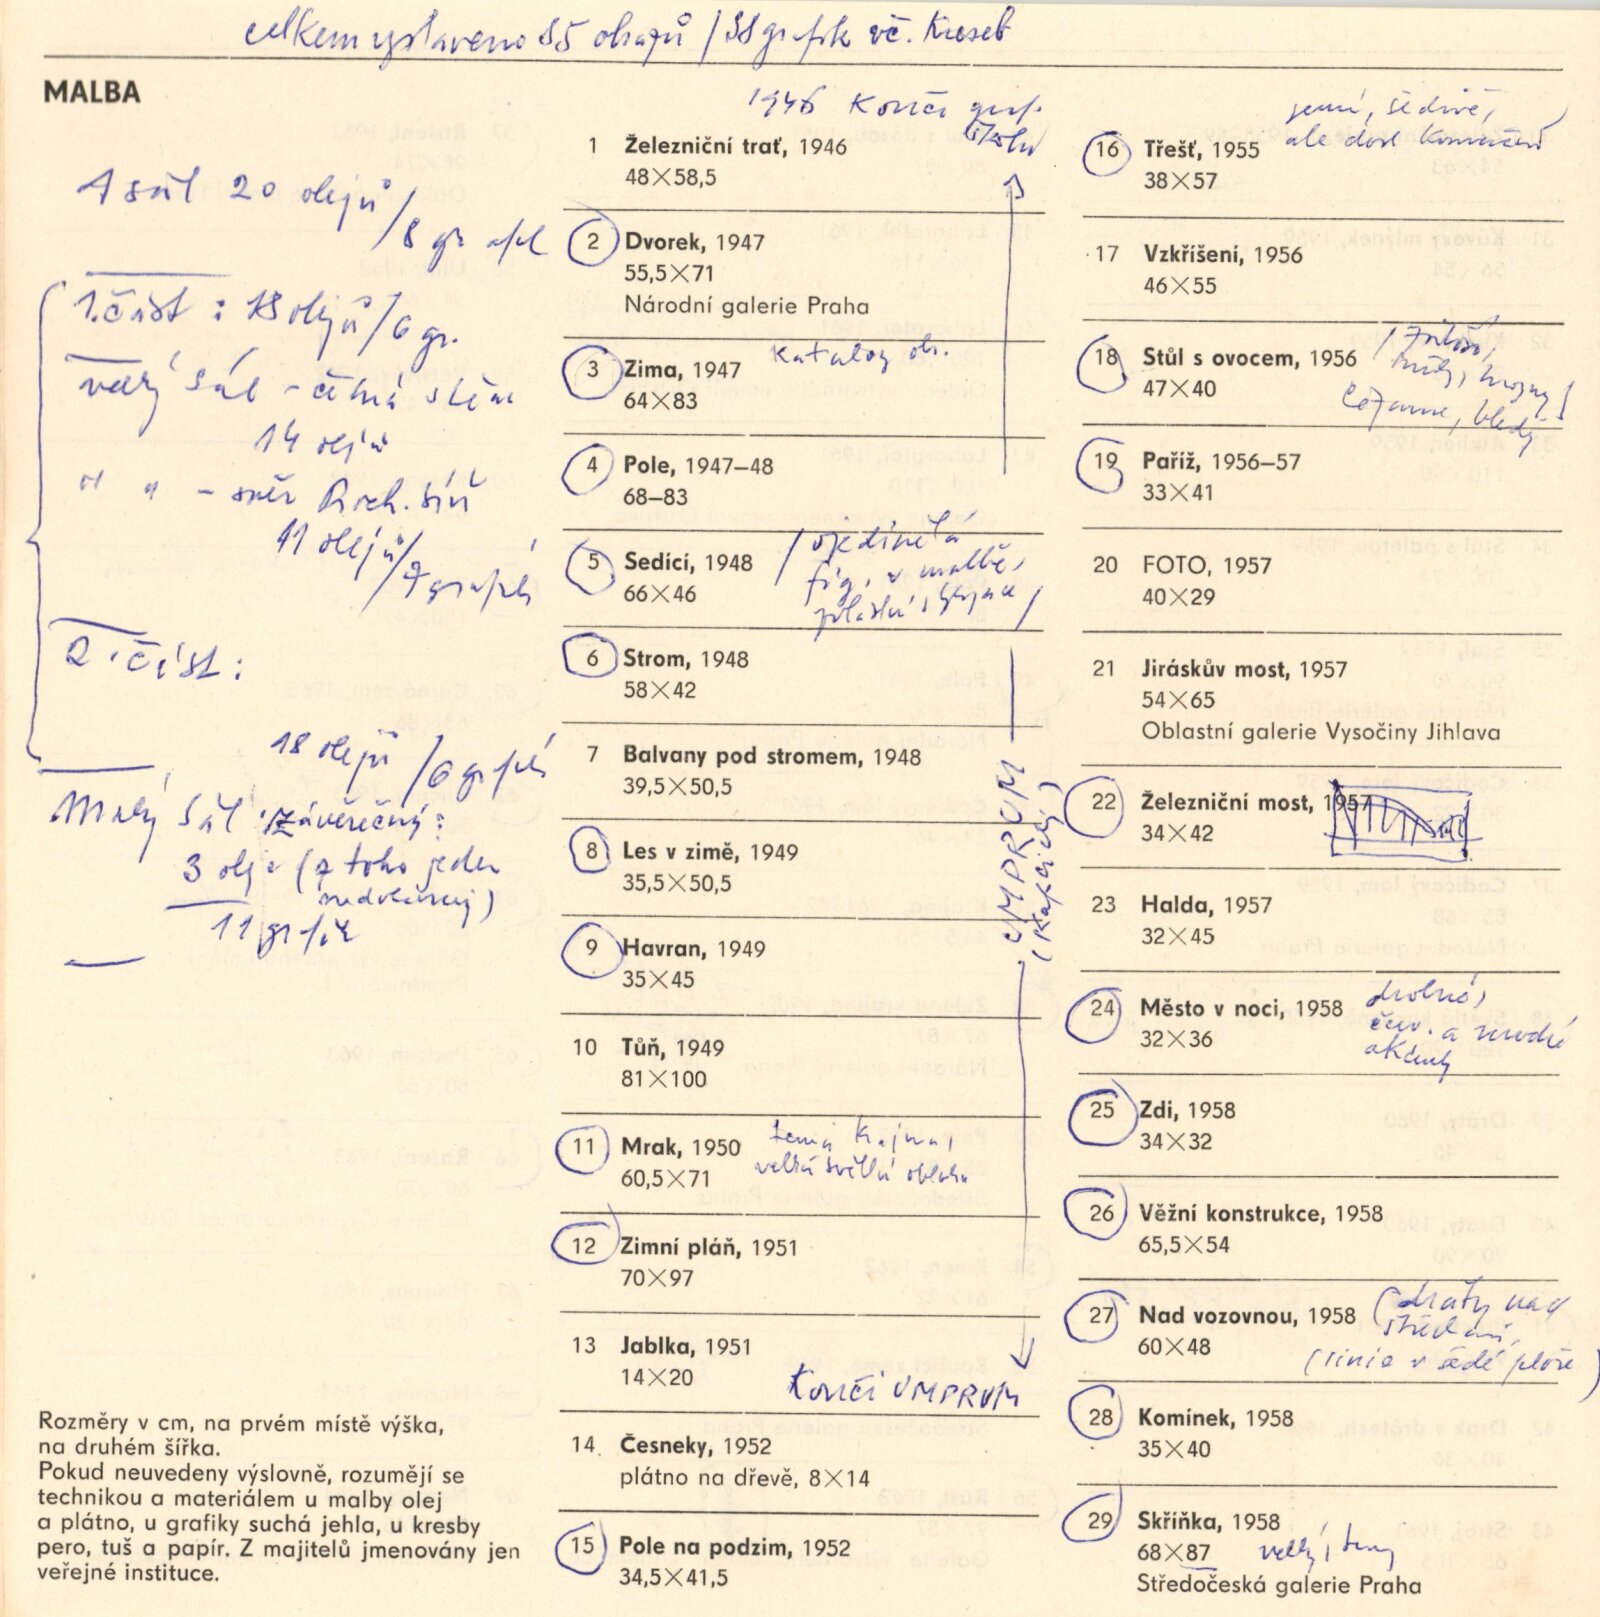 celkem vystaveno 85 obrazů / 38 grafik vč. kreseb
MALBA
1 sál 20 olejů
/ 8 graf
1. část : 18 olejů / 6 gr.
velký sál - čelná stěna
14 olejů
" " - směr Proch. síň
11 olejů
/ 7 grafik
2. část :
18 olejů / 6 grafik
Malý sál závěrečný :
3 oleje (z toho jeden
nedokončený)
11 grafik
Rozměry v cm, na prvém místě výška,
na druhém šířka.
Pokud neuvedeny výslovně, rozumějí se
technikou a materiálem u malby olej
a plátno, u grafiky suchá jehla, u kresby
pero, tuš a papír. Z majitelů jmenovány jen
veřejné instituce.
1946 končí graf.
školu
1 Železniční trať, 1946
48×58,5
2 Dvorek, 1947
55,5×71
Národní galerie Praha
3 Zima, 1947 katalog obr.
64×83
4 Pole, 1947–48
68–83
5 Sedící, 1948
66×46
/ ojedinělá
fig. v malbě,
/
6 Strom, 1948
58×42
7 Balvany pod stromem, 1948
39,5×50,5
8 Les v zimě, 1949
35,5×50,5
UMPRUM
9 Havran, 1949
35×45
10 Tůň, 1949
81×100
11 Mrak, 1950
60,5×71
temná krajina,
velká světlá obloha
12 Zimní pláň, 1951
70×97
13 Jablka, 1951
14×20
končí UMPRUM
14 Česneky, 1952
plátno na dřevě, 8×14
15 Pole na podzim, 1952
34,5×41,5
jemné, šedivé,
ale dost
16 Třešť, 1955
38×57
17 Vzkříšení, 1956
46×55
18 Stůl s ovocem, 1956
47×40
hrozny /
Cézanne, bledý
19 Paříž, 1956–57
33×41
20 FOTO, 1957
40×29
21 Jiráskův most, 1957
54×65
Oblastní galerie Vysočiny Jihlava
22 Železniční most, 1957
34×42
23 Halda, 1957
32×45
24 Město v noci, 1958
32×36
drobné,
červ. a modré
akcenty
25 Zdi, 1958
34×32
26 Věžní konstrukce, 1958
65,5×54
27 Nad vozovnou, 1958
60×48
(dráty nad
střechami,
(linie v šedé ploše)
28 Komínek, 1958
35×40
29 Skříňka, 1958
68×87 velký, tmavý
Středočeská galerie Praha